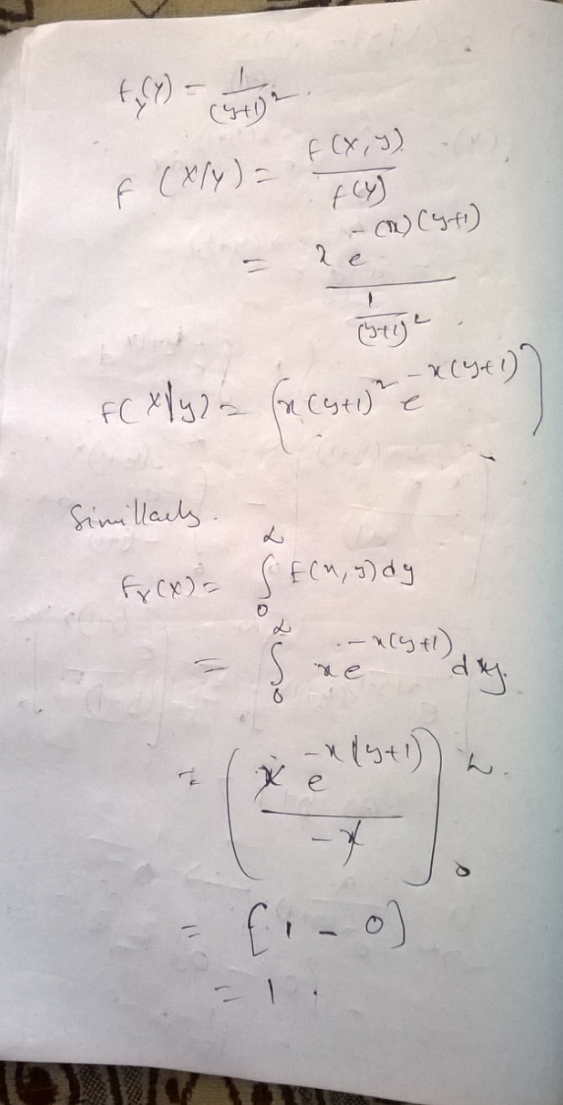 f_y(y) = 1/(y+1)^2.
f (x/y) = f(x,y)/f(y)
= x e^{-(x)(y+1)} / (1/(y+1)^2).
f(x|y) = (x(y+1)^2 e^{-x(y+1)})
Simillarly.
f_x(x) = ∫_0^∞ f(x,y)dy
= ∫_0^∞ xe^{-x(y+1)} dy.
= (x e^{-x(y+1)} / -x)_0^∞.
= [1 - 0]
= 1.